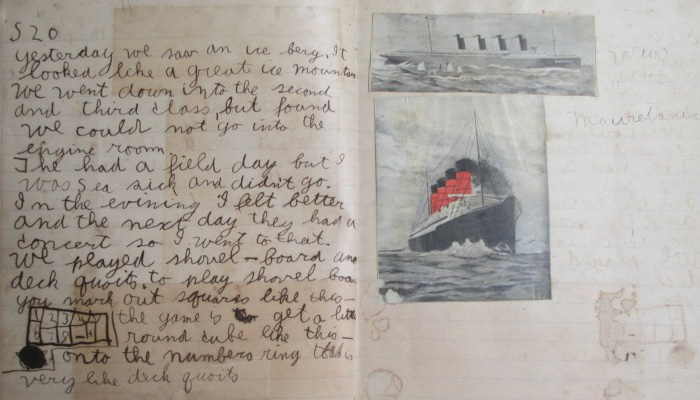 S 20
yesterday we saw an ice berg. It
looked like a great ice mountain
We went down into the second
and third class, but found
we could not go into the
engine room
The had a field day but I
was sea sick and didnt go.
In the evening I felt better
and the next day they had a
concert so I went to that.
We played shovel-board and
deck quoits. to play shovel boa
you mark out squares like this-
1 2 3 the game is to get a little
round cube like this-
onto the numbers ring this is
very like deck quoits
Mauretania